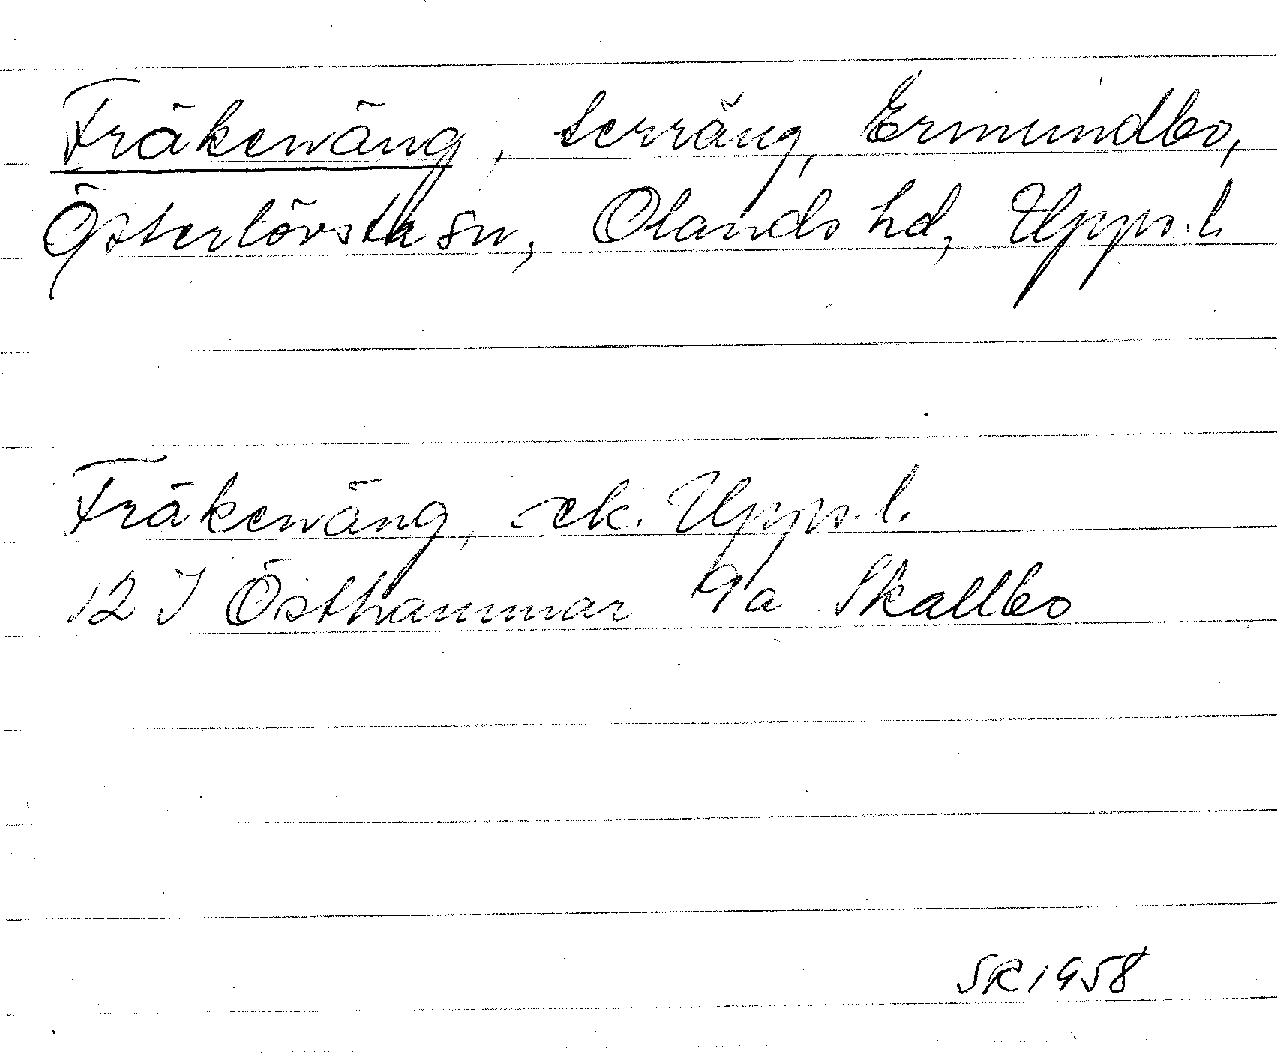 Fräkenäng, terräng, Ermundbo,
Österlövsta sn, Olands hd, Uppl.
Fräkenäng, ek. Uppl.
12 I Östhammar 9a Skallbo
SR 1958